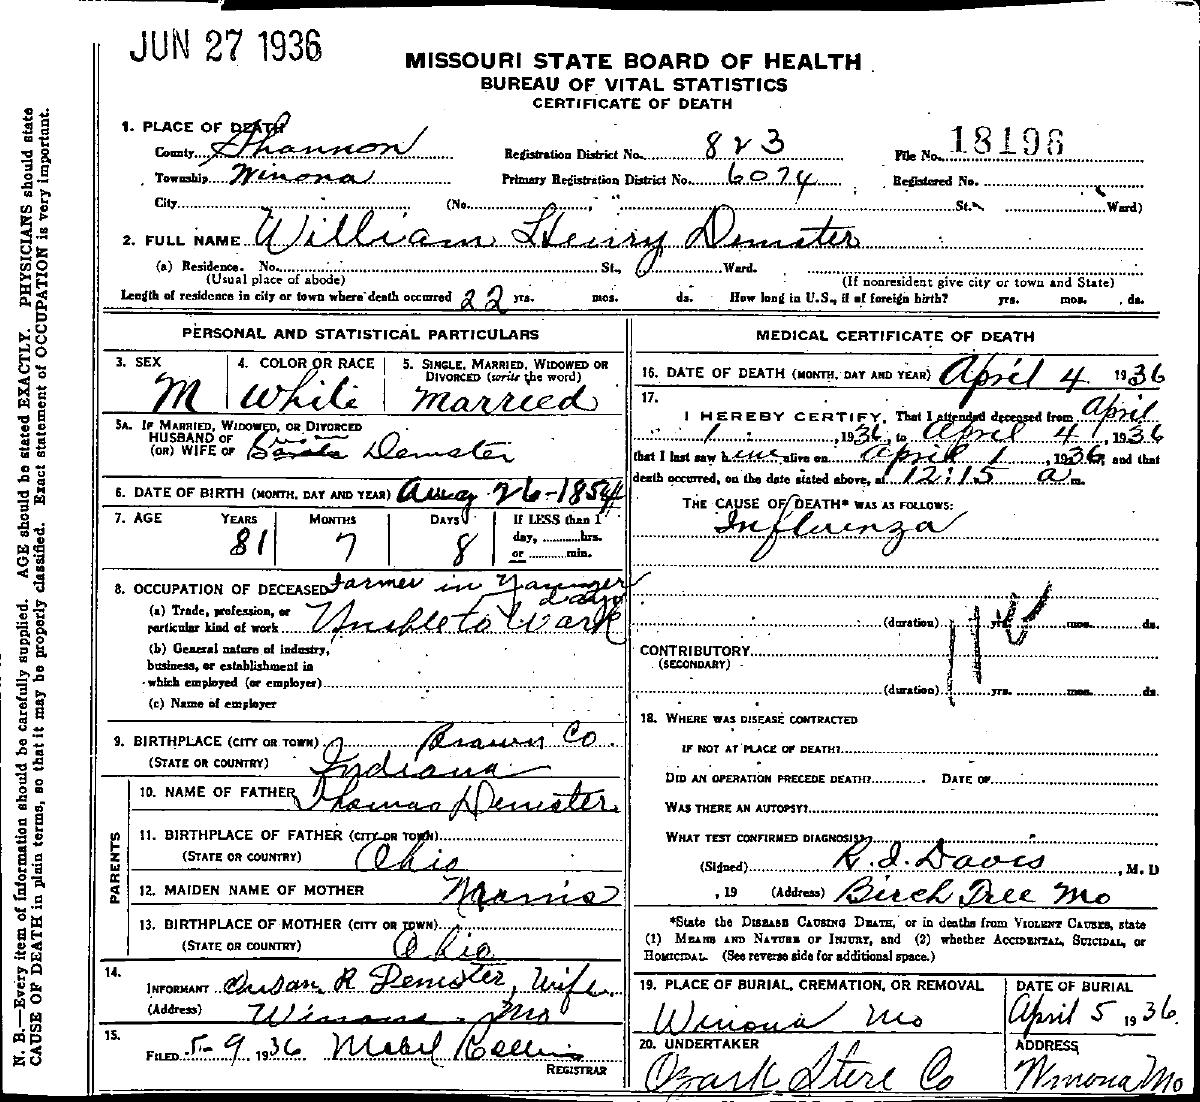 JUN 27 1936
MISSOURI STATE BOARD OF HEALTH
BUREAU OF VITAL STATISTICS
CERTIFICATE OF DEATH
N. B.—Every item of information should be carefully supplied. AGE should be stated EXACTLY. PHYSICIANS should state
CAUSE OF DEATH in plain terms, so that it may be properly classified. Exact statement of OCCUPATION is very important.
1. PLACE OF DEATH
County Shannon Registration District No. 823 File No. 18196
Township Winona Primary Registration District No. 6074 Registered No.
City (No. St. Ward)
2. FULL NAME William Henry Demster
(a) Residence. No. St., Ward.
(Usual place of abode) (If nonresident give city or town and State)
Length of residence in city or town where death occurred 22 yrs. mos. ds. How long in U.S., if of foreign birth? yrs. mos. ds.
PERSONAL AND STATISTICAL PARTICULARS
3. SEX M
4. COLOR OR RACE White
5. SINGLE, MARRIED, WIDOWED OR
DIVORCED (write the word)
Married
5A. IF MARRIED, WIDOWED, OR DIVORCED
HUSBAND OF
(OR) WIFE OF Demster
6. DATE OF BIRTH (MONTH, DAY AND YEAR) Aug 26-1854
7. AGE YEARS MONTHS DAYS If LESS than 1
day, hrs.
or min.
81 7 8
8. OCCUPATION OF DECEASED Farmer in Younger
days
(a) Trade, profession, or
particular kind of work Unable to Work
(b) General nature of industry,
business, or establishment in
which employed (or employer)
(c) Name of employer
9. BIRTHPLACE (CITY OR TOWN) Brown Co.
(STATE OR COUNTRY) Indiana
PARENTS
10. NAME OF FATHER Thomas Demster
11. BIRTHPLACE OF FATHER (CITY OR TOWN)
(STATE OR COUNTRY) Ohio
12. MAIDEN NAME OF MOTHER Morris
13. BIRTHPLACE OF MOTHER (CITY OR TOWN)
(STATE OR COUNTRY) Ohio
14.
INFORMANT Susan R Demster, Wife
(Address) Winona Mo
15.
FILED 5-9 1936 Mabel Collins
REGISTRAR
MEDICAL CERTIFICATE OF DEATH
16. DATE OF DEATH (MONTH, DAY AND YEAR) April 4 1936
17.
I HEREBY CERTIFY, That I attended deceased from April
1, 1936, to April 4, 1936
that I last saw him alive on April 1, 1936, and that
death occurred, on the date stated above, at 12:15 a m.
THE CAUSE OF DEATH* WAS AS FOLLOWS:
Influenza
(duration) yrs. mos. ds.
CONTRIBUTORY
(SECONDARY)
(duration) yrs. mos. ds.
18. WHERE WAS DISEASE CONTRACTED
IF NOT AT PLACE OF DEATH?
DID AN OPERATION PRECEDE DEATH? DATE OF
WAS THERE AN AUTOPSY?
WHAT TEST CONFIRMED DIAGNOSIS?
(Signed) R. I. Davis, M. D
, 19 (Address) Birch Tree Mo
*State the DISEASE CAUSING DEATH, or in deaths from VIOLENT CAUSES, state
(1) MEANS AND NATURE OF INJURY, and (2) whether ACCIDENTAL, SUICIDAL, or
HOMICIDAL. (See reverse side for additional space.)
19. PLACE OF BURIAL, CREMATION, OR REMOVAL
Winona Mo
DATE OF BURIAL
April 5 1936
20. UNDERTAKER
Ozark Store Co
ADDRESS
Winona Mo